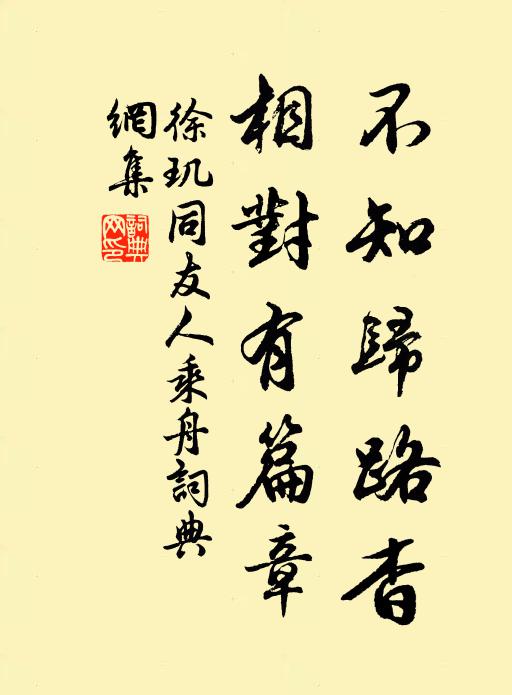 不知歸路杳
相對有篇章
徐玑同友人乘舟詞典
網集
詞典
网印